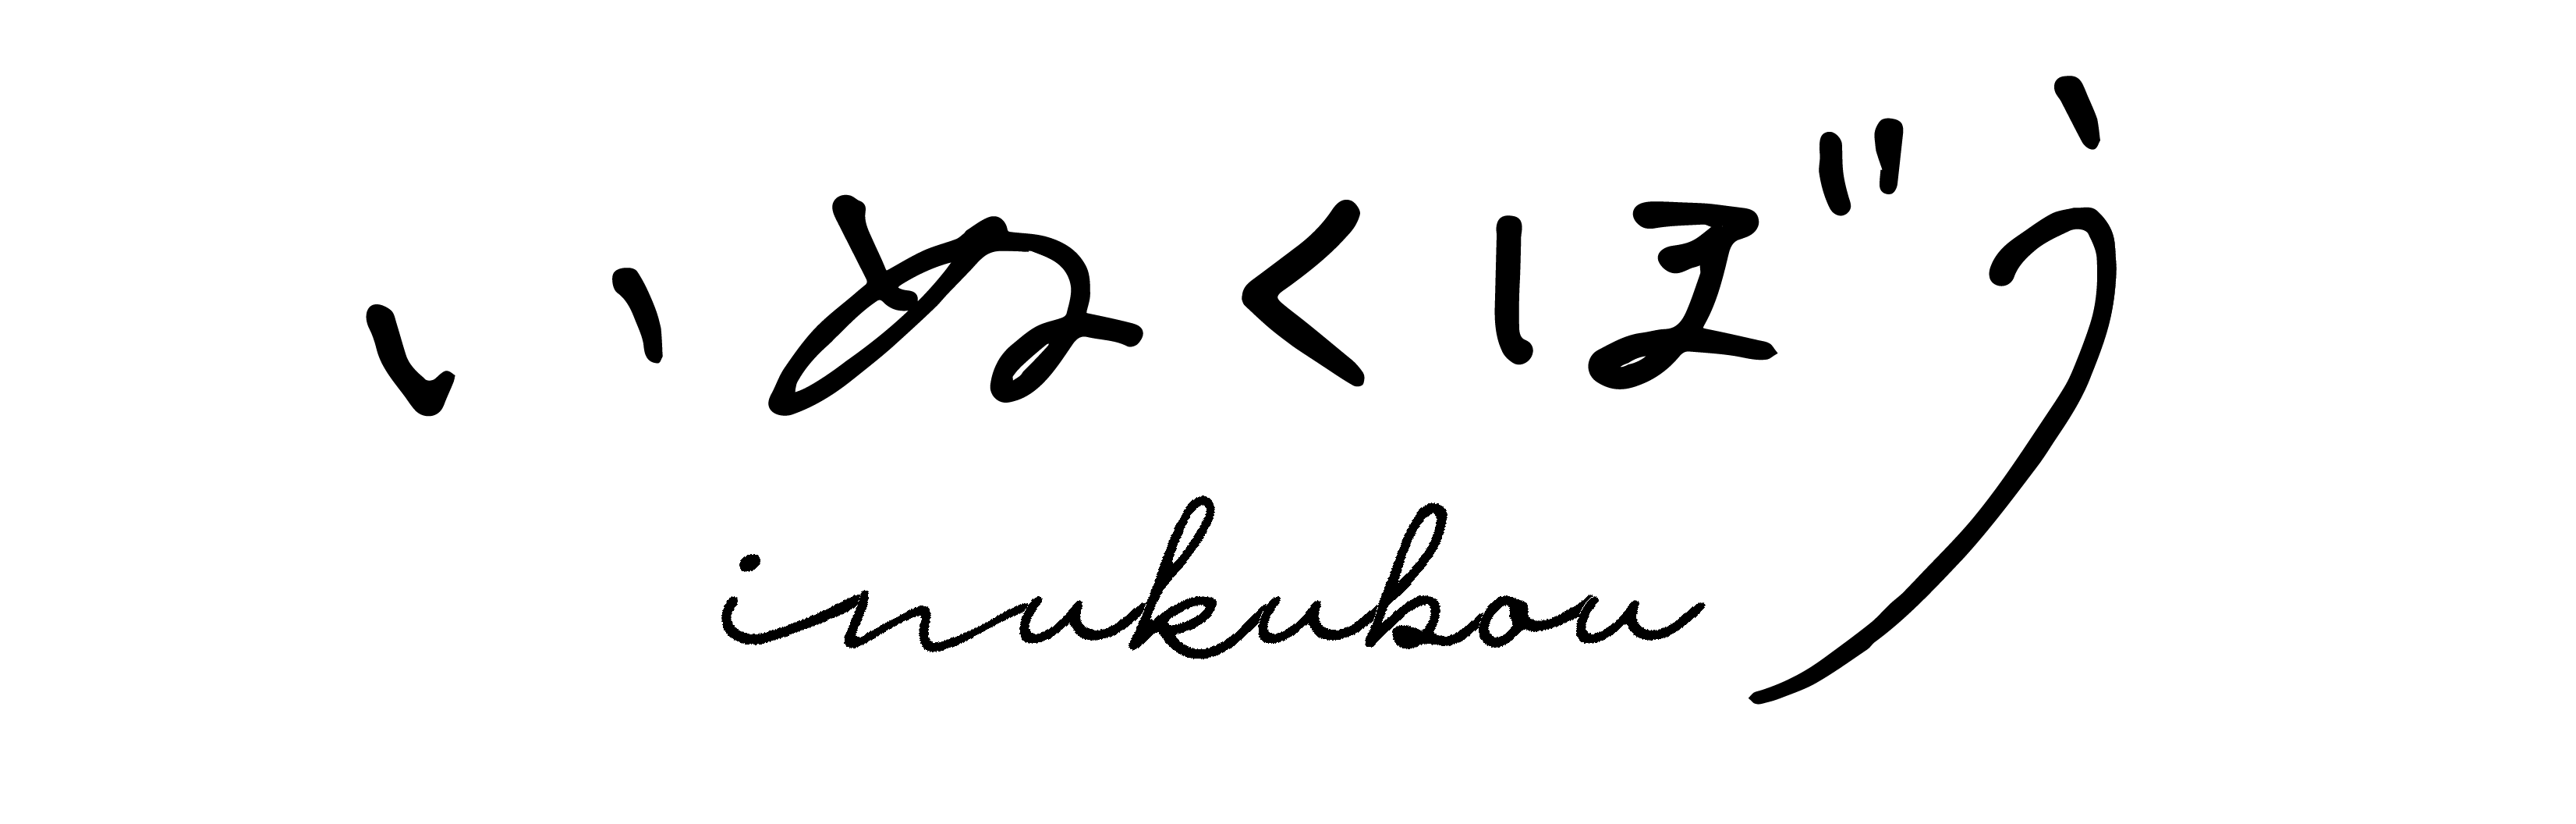 いぬくぼう
inukubou